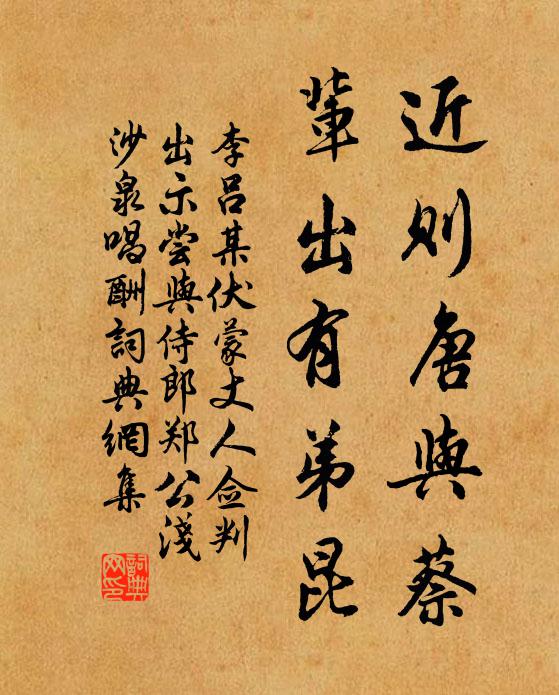 近则唐與蔡
輩出有弟昆
李吕某伏蒙丈人佥判
出示尝與侍郎郑公淺
沙泉唱酬詞典網集
詞典网印